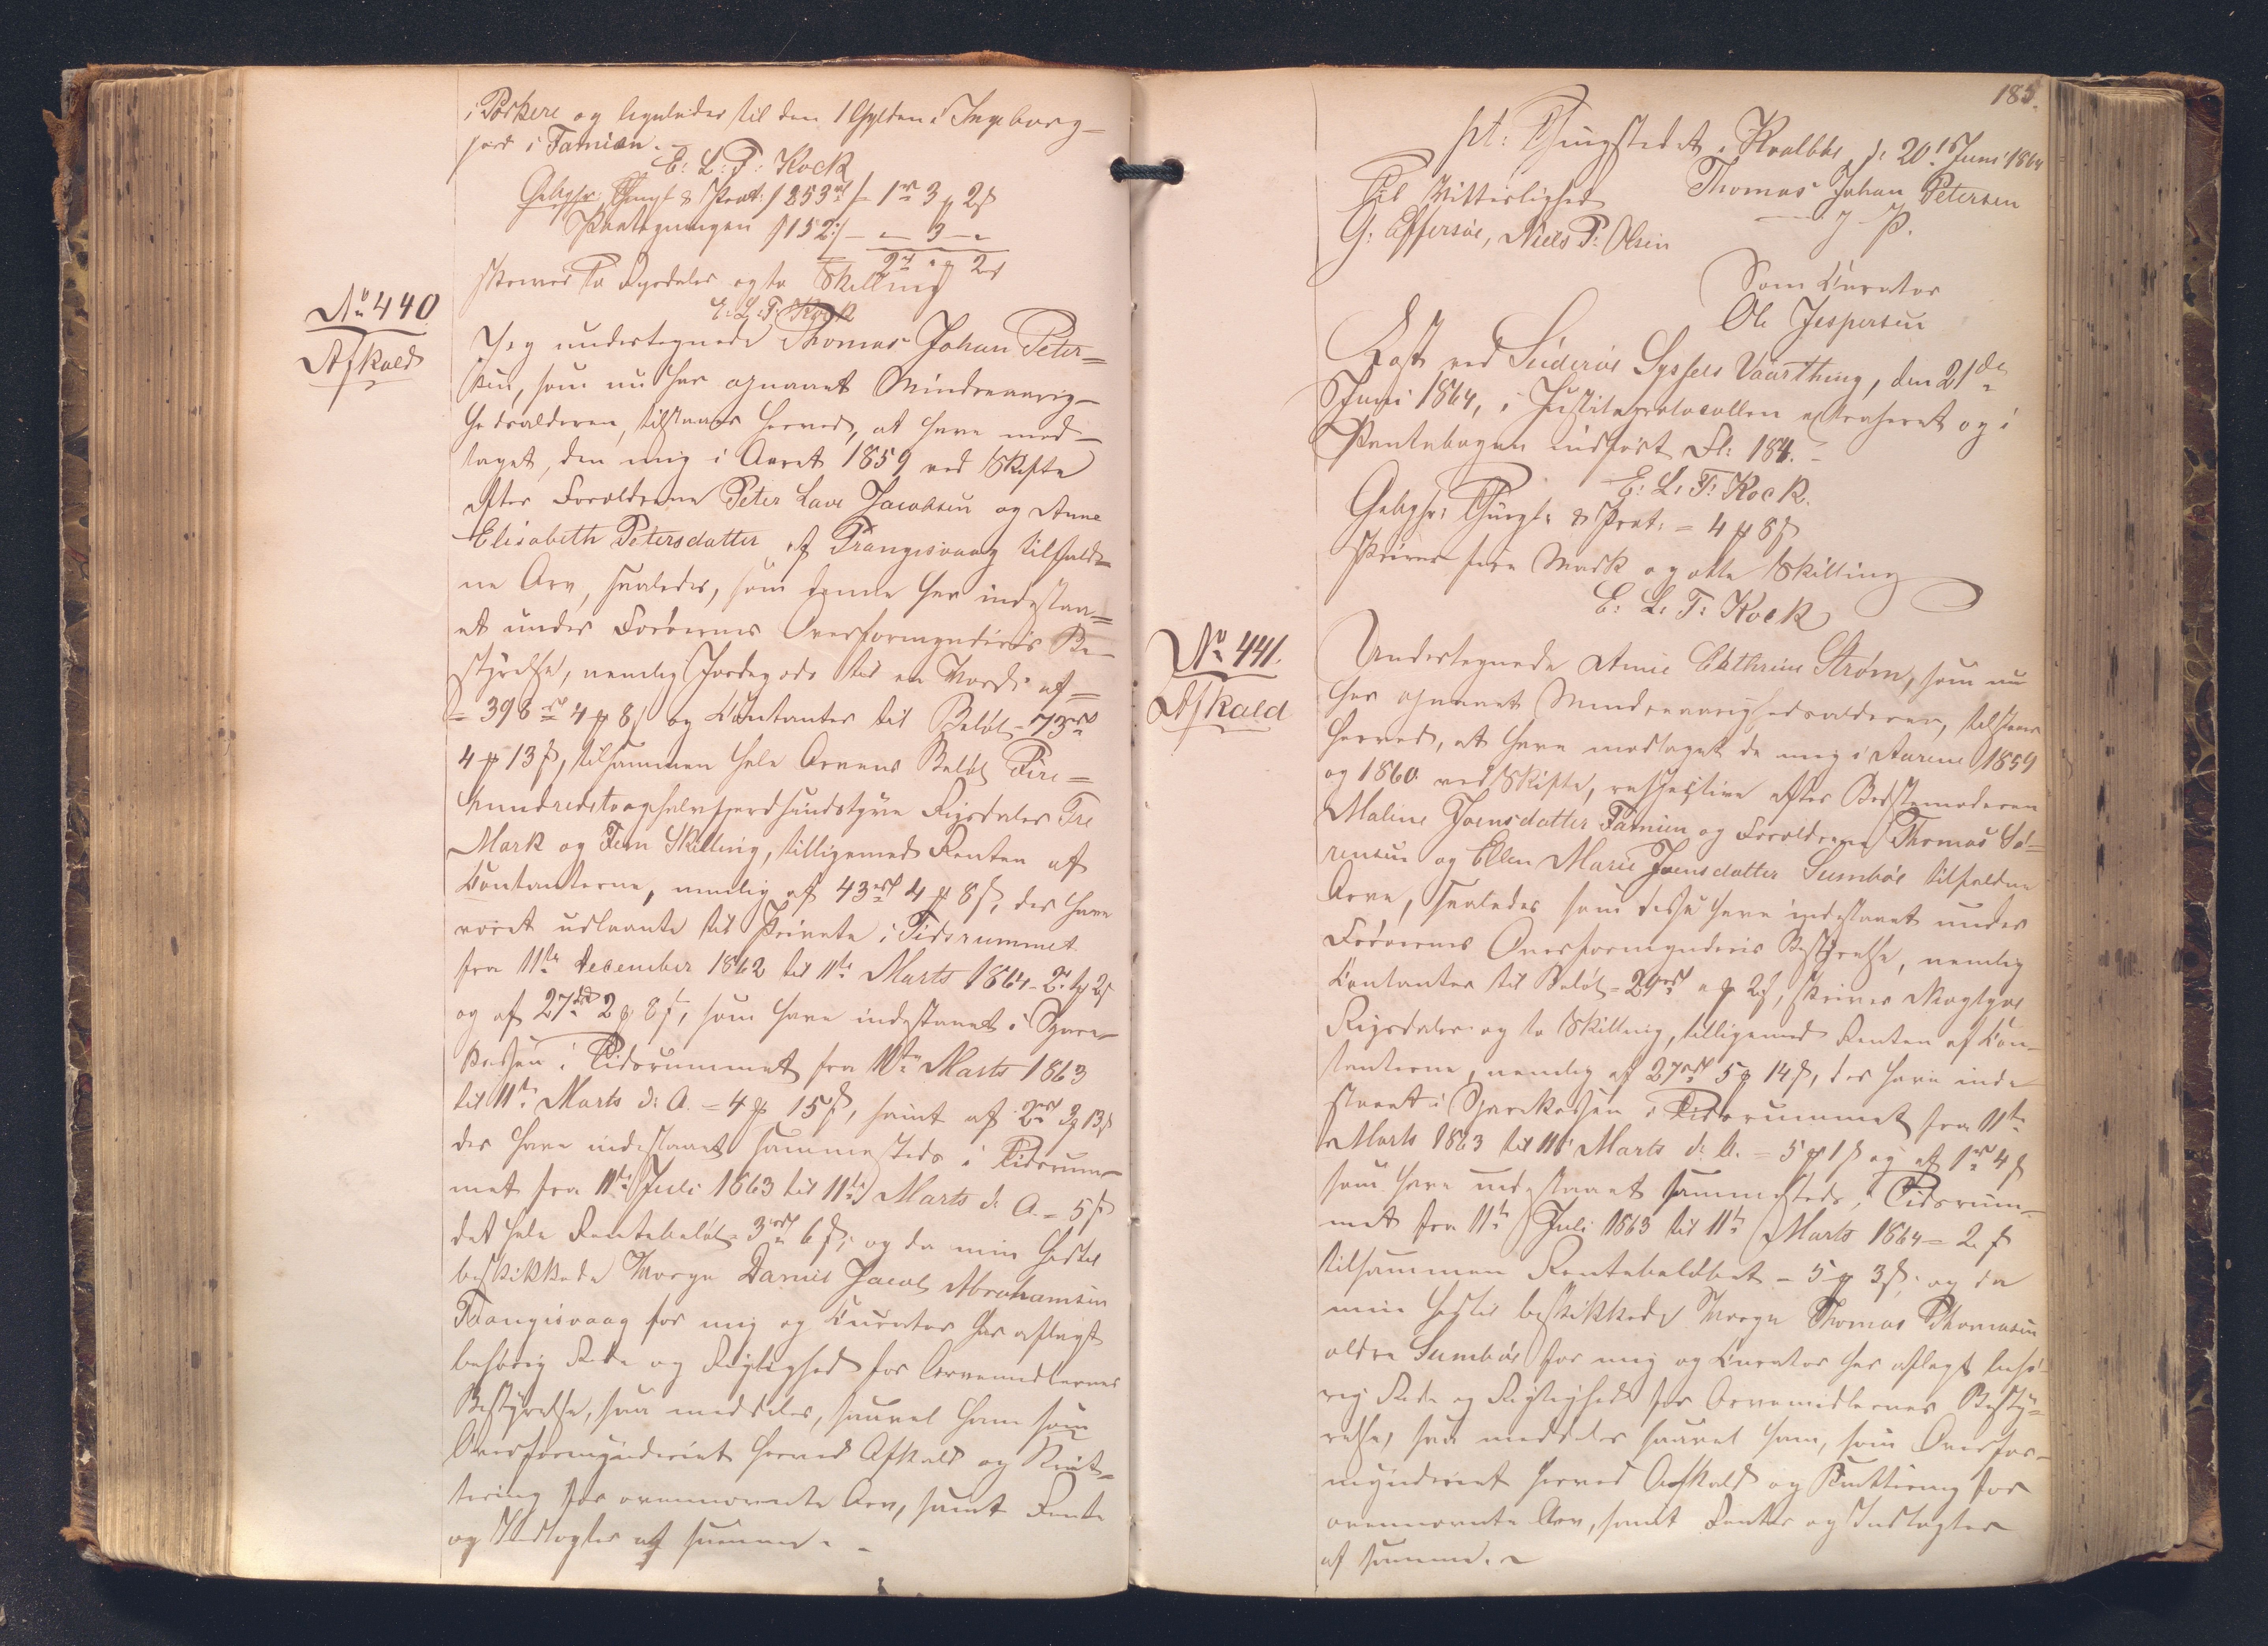 i Porkere og ligeledes til den 1 Gylden i Ingeborg-
jord i Famien.
E: L: T: Kock
Gebyhr: Thingl: & Prot: § 253 = 1 rd 3 ₰ 2 ß
Paategningen § 152 - " - 3 - "
2 rd " ₰ 2 ß
skriver to Rigsdaler og to Skilling
E: L: T: Kock
No 440
Afkald
Jeg undertegnede Thomas Johan Peter=
sen, som nu har opnaaet Mindreaarig-
hedsalderen, tilstaaer herved, at have mod-
taget, den mig i Aaret 1859 ved Skifte
efter Forældrene Peter Lave Jacobsen og Anne
Elisabeth Petersdatter af Trangisvaag tilfald-
ne Arv, saaledes, som denne har indestaa=
et under Færøernes Overformynderies Be-
styrelse, nemlig Jordegods til en Værdi af =
= 398 rd 4 ₰ 8 ß og Contanter til Beløb = 73 rd
4 ₰ 13 ß, tilsammen hele Arvens Beløb Fire=
hundredetoghalvfjerdsindstyve Rigsdaler Tre
Mark og Fem Skilling, tilligemed Renten af
Contanterne, nemlig af 43 rd 4 ₰ 8 ß, der have
været udlaante til Private i Tidsrummet
fra 11te December 1862 til 11te Marts 1864 = 2 rd 1 ₰ 2 ß
og af 27 rd 2 ₰ 8 ß, som have indestaaet i Spare-
kassen i Tidsrummet fra 11te Marts 1863
til 11te Marts d: A. = 4 ₰ 15 ß, samt af 2 rd 3 ₰ 13 ß
der have indestaaet sammesteds i Tidsrum-
met fra 11te Juli 1863 til 11te Marts d: A. = 5 ß
det hele Rentebeløb = 3 rd 6 ß; og da min hertil
beskikkede Værge Daniel Jacob Abrahamsen
Trangisvaag for mig og Curator har aflagt
behørig Rede og Rigtighed for Arvemidlernes
Bestyrelse, saa meddeles, saavel ham som
Overformynderiet herved Afkald og Kvit-
tering for ovennævnte Arv, samt Rente
og Indtægter af samme. -
185.
pt: Thingstedet i Kvalbøe, d: 20de Juni 1864
Thomas Johan Petersen
Til Vitterlighed
G: Effersøe, Niels P: Olsen
Som Curator
Ole Jespersen
Læst ved Süderøe Syssels Vaarthing, den 21de
Juni 1864, i Justitsprotocollen extraheret og i
Pantebogen indført Fl: 184. -
E: L: T: Kock.
Gebyhr: Thingl: & Prot: = 4 ₰ 8 ß
skriver fire Mark og otte Skilling
E: L: T: Kock
No 441.
Afkald
Undertegnede Anne Cathrine Strøm, som nu
har opnaaet Mindreaarighedsalderen, tilstaaer
herved, at have modtaget de mig i Aarene 1859
og 1860 ved Skifte, respective efter Bedstemoderen
Maline Joensdatter Famien og Forældrene Thomas Sø-
rensen og Ellen Marie Joensdatter Sumbøe tilfaldne
Arve, saaledes som disse have indestaaet under
Færøernes Overformynderies Bestyrelse, nemlig
Contanter til Beløb = 29 rd " ₰ 2 ß, skriver Niogtyve
Rigsdaler og to Skilling, tilligemed Renten af Con-
tanterne, nemlig af 27 rd 5 ₰ 14 ß, der have inde
staaet i Sparekassen i Tidsrummet fra 11te
Marts 1863 til 11te Marts d: A. = 5 ₰ 1 ß og af 1 rd 4 ß
som have indestaaet sammesteds, i Tidsrum-
met fra 11te Juli 1863 til 11te Marts 1864 = 2 ß
tilsammen Rentebeløbet = 5 ₰ 3 ß; og da
min hertil beskikkede Værge Thomas Thomasen
ældre Sumbøe for mig og Curator har aflagt behø-
rig Rede og Rigtighed for Arvemidlernes Besty-
relse, saa meddeles saavel ham, som Overfor-
mynderiet herved Afkald og Kvittering for
ovennævnte Arv, samt Renter og Indtægter
af samme. -